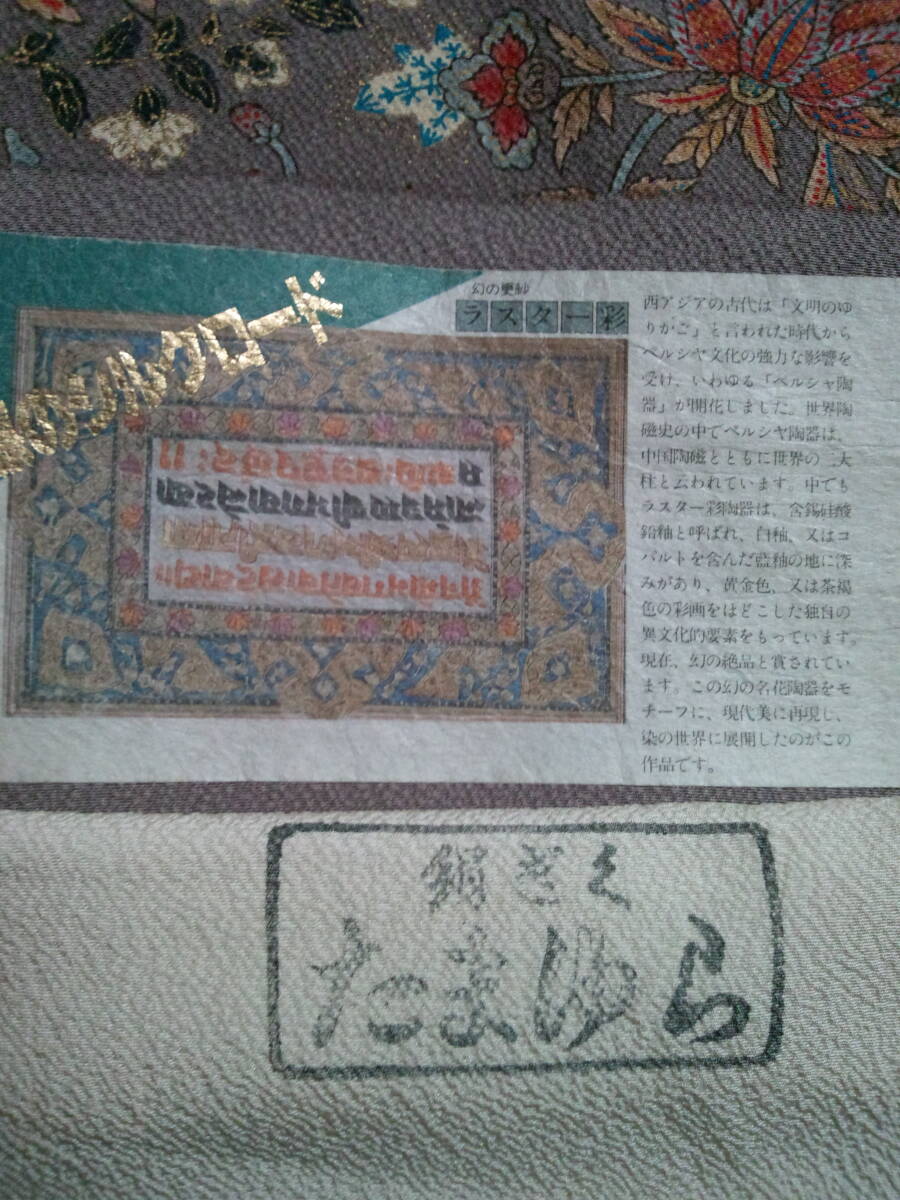 のシルクロード
幻の更紗
ラスター彩
西アジアの古代は「文明のゆ
りかご」と言われた時代から
ペルシヤ文化の強力な影響を
受け、いわゆる「ペルシャ陶
器」が開花しました。世界陶
磁史の中でペルシヤ陶器は、
中国陶磁とともに世界の二大
柱と云われています。中でも
ラスター彩陶器は、含錫硅酸
鉛釉と呼ばれ、白釉、又はコ
バルトを含んだ藍釉の地に深
みがあり、黄金色、又は茶褐
色の彩画をほどこした独自の
異文化的要素をもっています。
現在、幻の絶品と賞されてい
ます。この幻の名花陶器をモ
チーフに、現代美に再現し、
染の世界に展開したのがこの
作品です。
絹ぎく
たまゆら